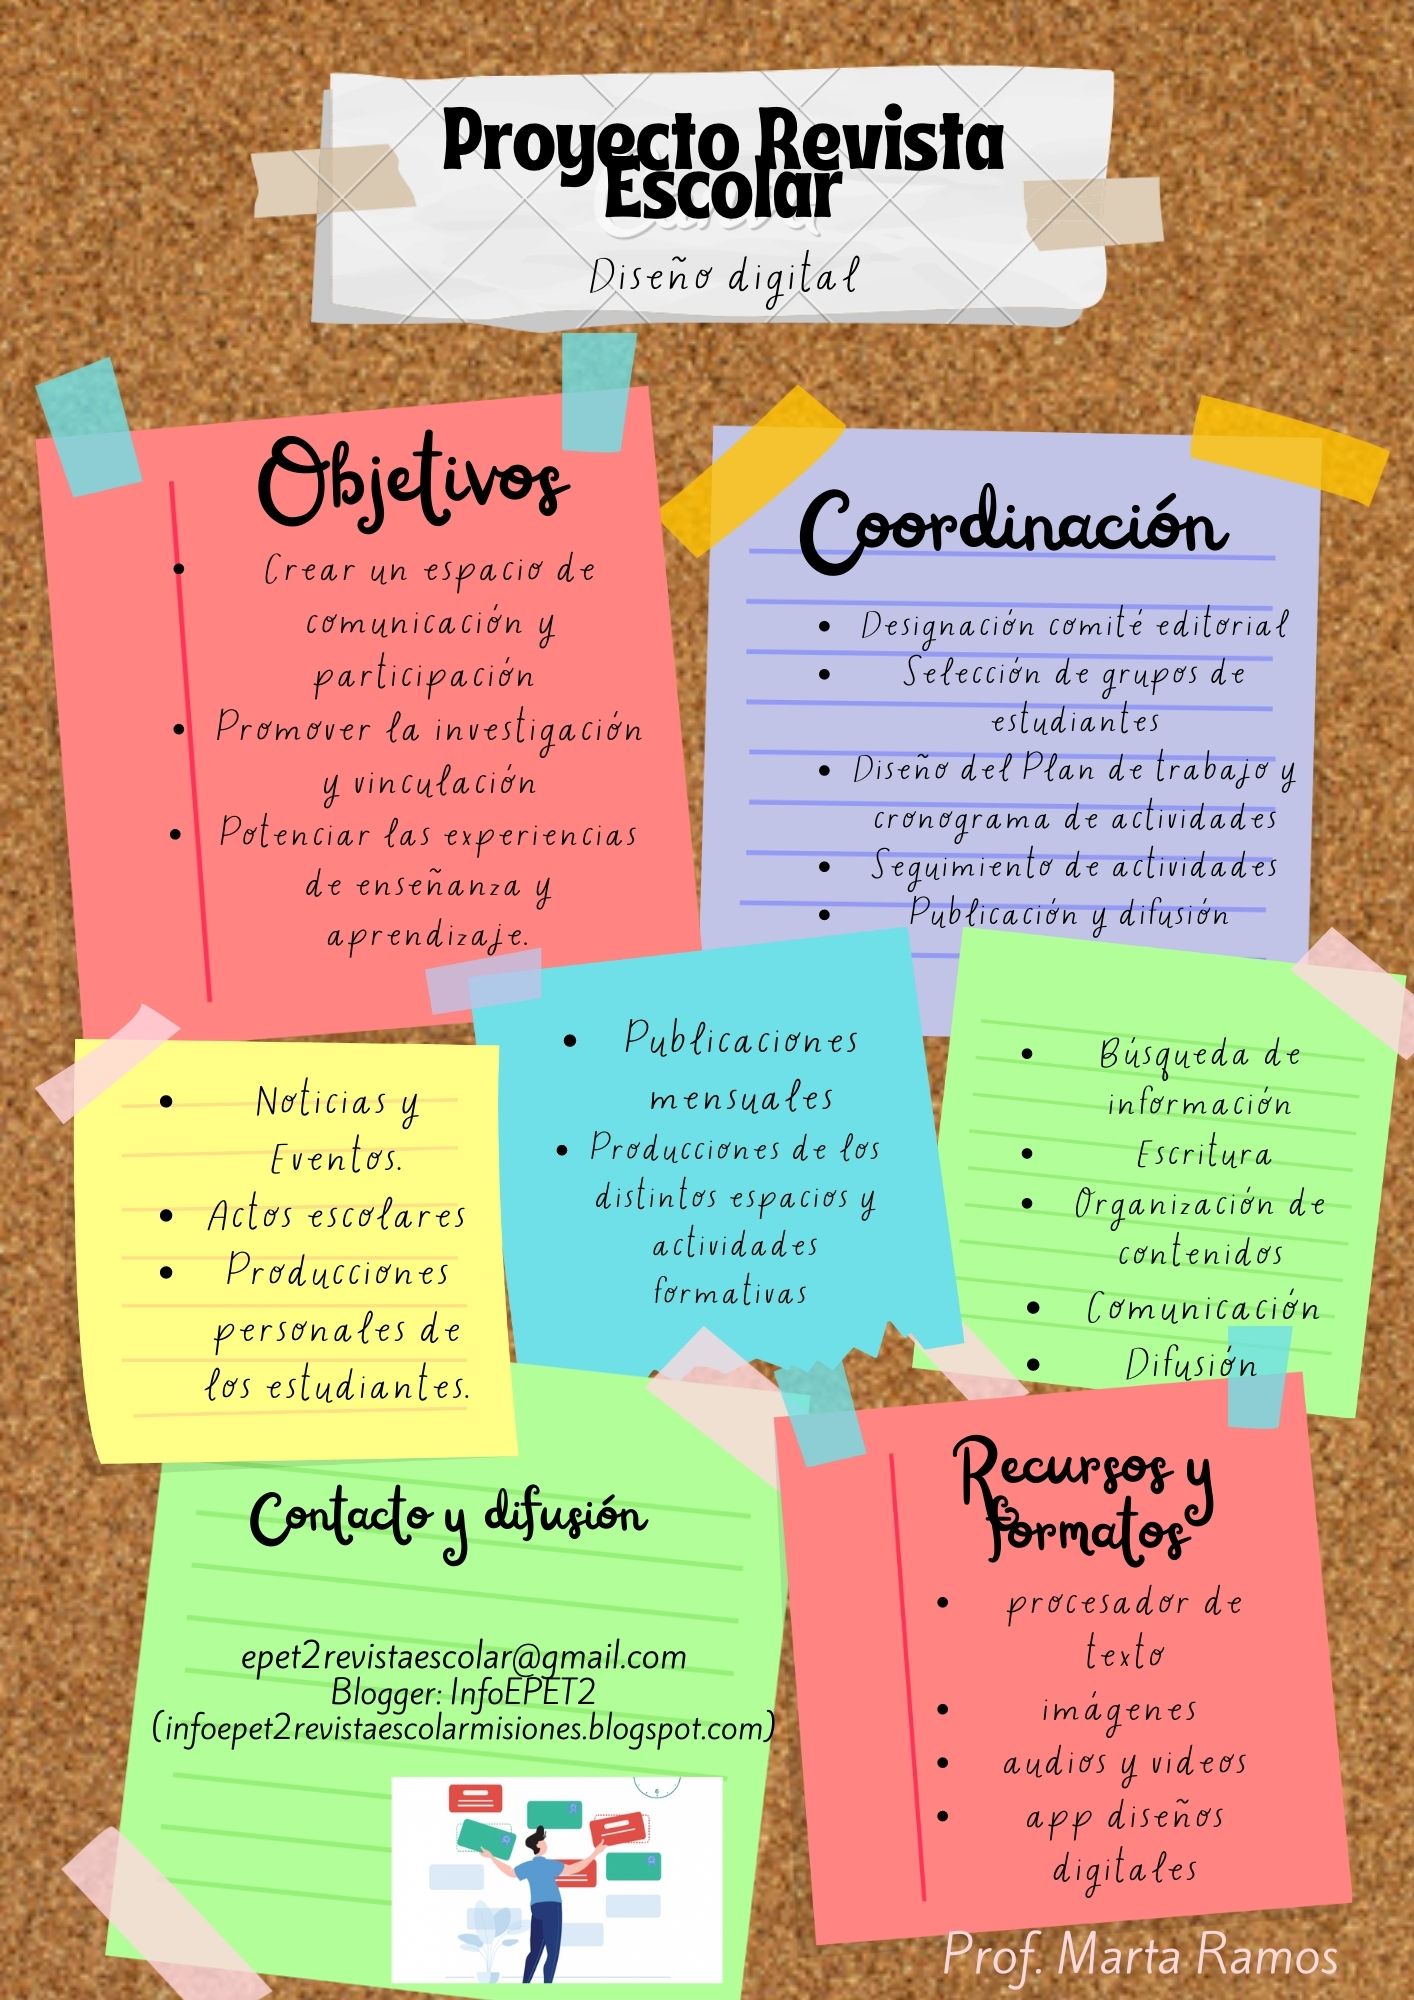 Proyecto Revista
Escolar
Diseño digital
Objetivos
• Crear un espacio de
comunicación y
participación
• Promover la investigación
y vinculación
• Potenciar las experiencias
de enseñanza y
aprendizaje.
Coordinación
• Designación comité editorial
• Selección de grupos de
estudiantes
• Diseño del Plan de trabajo y
cronograma de actividades
• Seguimiento de actividades
• Publicación y difusión
• Noticias y
Eventos.
• Actos escolares
• Producciones
personales de
los estudiantes.
• Publicaciones
mensuales
• Producciones de los
distintos espacios y
actividades
formativas
• Búsqueda de
información
• Escritura
• Organización de
contenidos
• Comunicación
• Difusión
Contacto y difusión
epet2revistaescolar@gmail.com
Blogger: InfoEPET2
(infoepet2revistaescolarmisiones.blogspot.com)
Recursos y
formatos
• procesador de
texto
• imágenes
• audios y videos
• app diseños
digitales
Prof. Marta Ramos